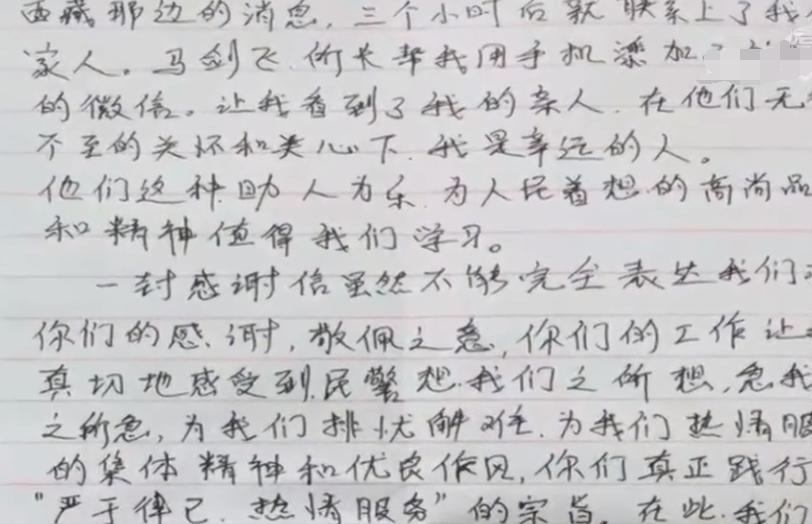 西藏那边的消息，三个小时后就联系上了我
家人。马剑飞所长帮我用手机添加了
的微信。让我看到了我的亲人，在他们无
不至的关怀和关心下，我是幸运的人。
他们这种助人为乐，为人民着想的高尚品
和精神值得我们学习。
一封感谢信虽然不能完全表达我们
你们的感谢，敬佩之意，你们的工作让
真切地感受到民警想我们之所想，急我
之所急，为我们排忧解难，为我们热情服
的集体精神和优良作风，你们真正践行
"严于律己，热情服务"的宗旨。在此，我们